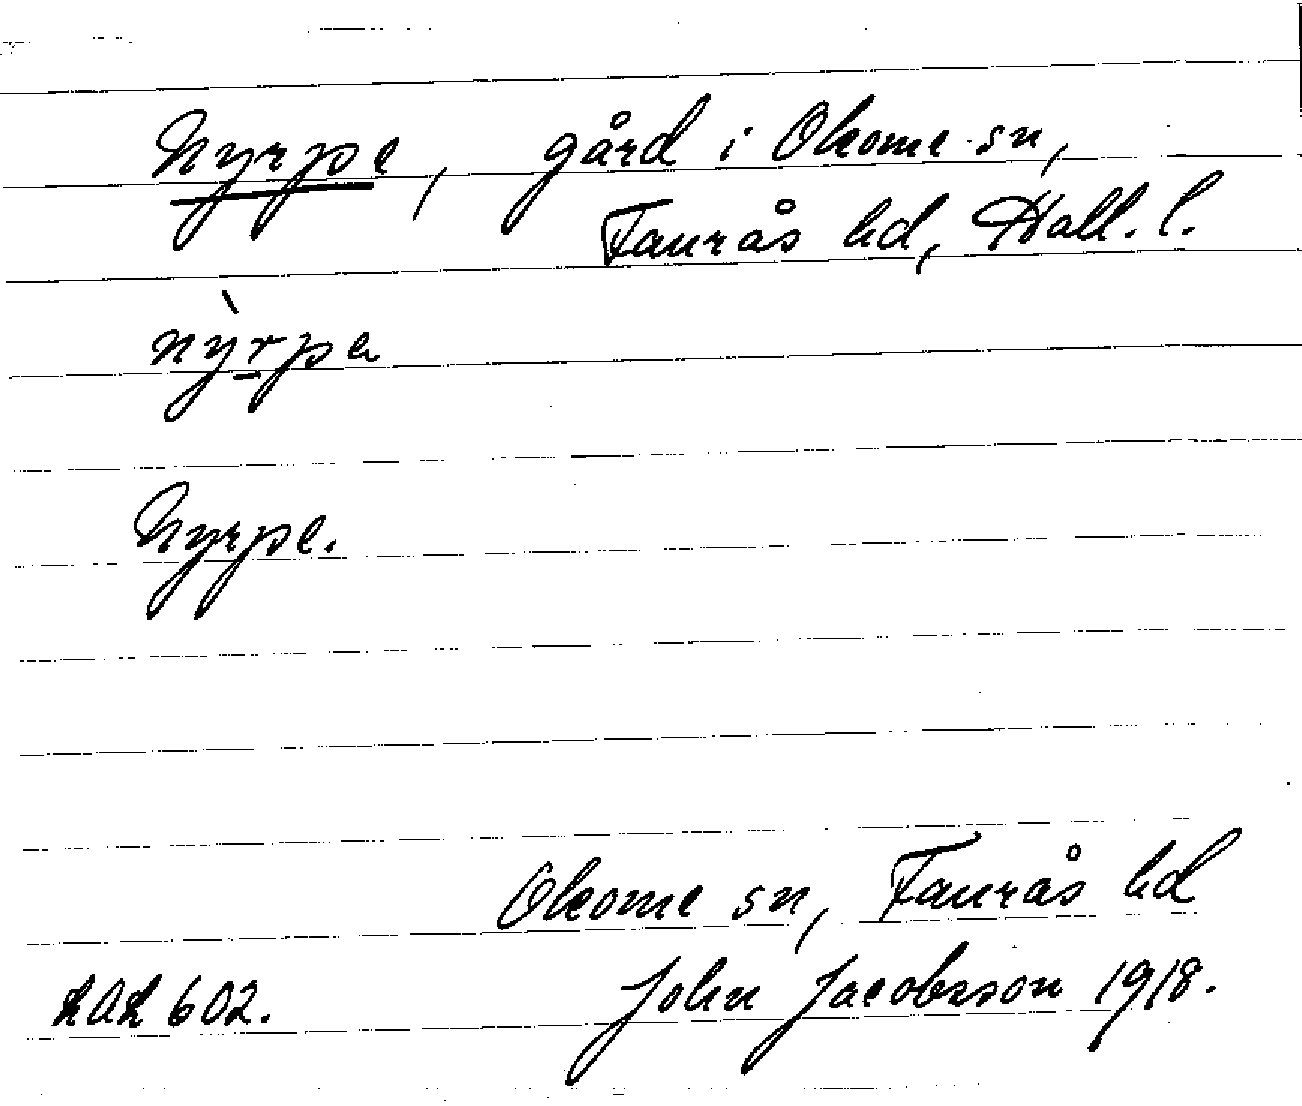 Nyrpe, gård i Okome sn,
Faurås hd, Hall. l.
nỳrpe
Nyrpe.
Okome sn, Faurås hd
John Jacobsson 1918.
602.